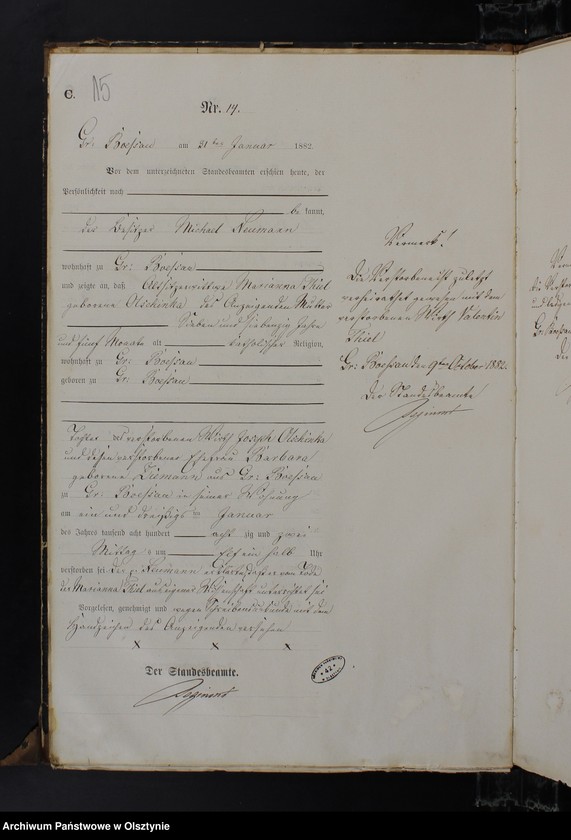 C.
15
Nr. 14.
Gr: Boessau am 31ten Januar 1882.
Vor dem unterzeichneten Standesbeamten erschien heute, der
Persönlichkeit nach
be kannt,
der Besitzer Michael Neumann
wohnhaft zu Gr: Boessau
und zeigte an, daß Altsitzerwittwe Marianna Thiel
geborene Olschinka, des Anzeigenden Mutter
Sieben und siebenzig Jahre
und fünf Monate alt katholischer Religion,
wohnhaft zu Gr: Boessau
geboren zu Gr: Boessau
Tochter des verstorbenen Wirth Joseph Olschinka
und dessen verstorbener Ehefrau Barbara
geborene aus Gr: Boessau
zu Gr: Boessau in seiner Wohnung
am ein und dreißigsten Januar
des Jahres tausend acht hundert acht zig und zwei
Mittags um elf ein halb Uhr
verstorben sei. Der p. Neumann erklärte, daß er vom Tode
der Marianna Thiel aus eigener Wissenschaft unterrichtet sei
Vorgelesen, genehmigt und wegen Schreibensunkunde mit dem
Handzeichen des Anzeigenden versehen
X X X
Der Standesbeamte.
Vermerk!
Die Verstorbene ist zuletzt
verheirathet gewesen mit dem
verstorbenen Wirth Valentin
Thiel
Gr: Boessau den 9ten October 1882.
Der Standesbeamte
42
Archiwum Państwowe w Olsztynie